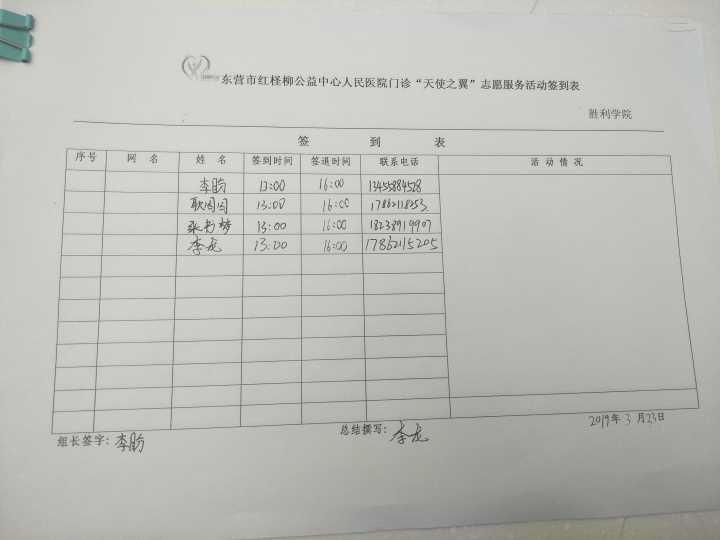 东营市红柽柳公益中心人民医院门诊“天使之翼”志愿服务活动签到表
胜利学院
签 到 表
序号 网 名 姓 名 签到时间 签退时间 联系电话 活 动 情 况
李昀 13:00 16:00 13455884528
耿囡囡 13:00 16:00 17862118253
张书婷 13:00 16:00 18238919907
李龙 13:00 16:00 17862115205
2019年 3 月23日
组长签字: 李昀 总结撰写: 李龙